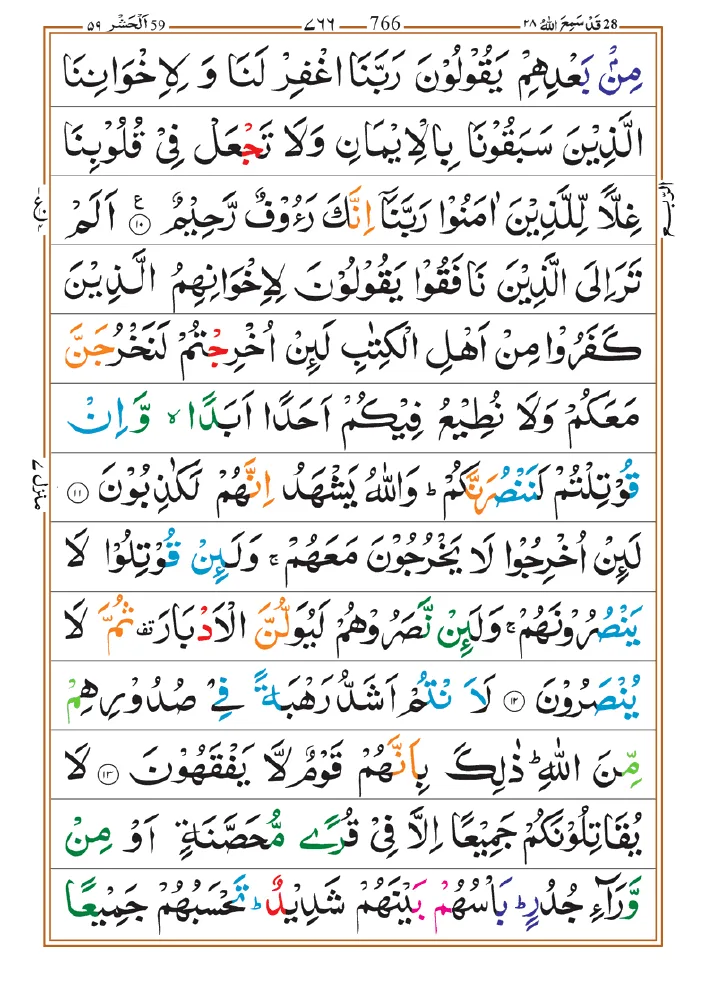 28 قَدْ سَمِعَ اللّٰهُ ٢٨ 766 ٧٦٦ 59 اَلْحَشْر ٥٩
مِنْۢ بَعْدِهِمْ يَقُوْلُوْنَ رَبَّنَا اغْفِرْ لَنَا وَ لِاِخْوَانِنَا
الَّذِيْنَ سَبَقُوْنَا بِالْاِيْمَانِ وَلَا تَجْعَلْ فِيْ قُلُوْبِنَا
غِلًّا لِّلَّذِيْنَ اٰمَنُوْا رَبَّنَاۤ اِنَّكَ رَءُوْفٌ رَّحِيْمٌ ۝١٠ اَلَمْ
تَرَ اِلَى الَّذِيْنَ نَافَقُوْا يَقُوْلُوْنَ لِاِخْوَانِهِمُ الَّذِيْنَ
كَفَرُوْا مِنْ اَهْلِ الْكِتٰبِ لَئِنْ اُخْرِجْتُمْ لَنَخْرُجَنَّ
مَعَكُمْ وَلَا نُطِيْعُ فِيْكُمْ اَحَدًا اَبَدًا ۙ وَّاِنْ
قُوْتِلْتُمْ لَنَنْصُرَنَّكُمْ ؕ وَاللّٰهُ يَشْهَدُ اِنَّهُمْ لَكٰذِبُوْنَ ۝١١
لَئِنْ اُخْرِجُوْا لَا يَخْرُجُوْنَ مَعَهُمْ ۚ وَلَئِنْ قُوْتِلُوْا لَا
يَنْصُرُوْنَهُمْ ۚ وَلَئِنْ نَّصَرُوْهُمْ لَيُوَلُّنَّ الْاَدْبَارَ ۫ ثُمَّ لَا
يُنْصَرُوْنَ ۝١٢ لَا۠ نْتُمْ اَشَدُّ رَهْبَةً فِيْ صُدُوْرِهِمْ
مِّنَ اللّٰهِ ؕ ذٰلِكَ بِاَنَّهُمْ قَوْمٌ لَّا يَفْقَهُوْنَ ۝١٣ لَا
يُقَاتِلُوْنَكُمْ جَمِيْعًا اِلَّا فِيْ قُرًى مُّحَصَّنَةٍ اَوْ مِنْ
وَّرَآءِ جُدُرٍ ؕ بَاْسُهُمْ بَيْنَهُمْ شَدِيْدٌ ؕ تَحْسَبُهُمْ جَمِيْعًا
منزل ٧